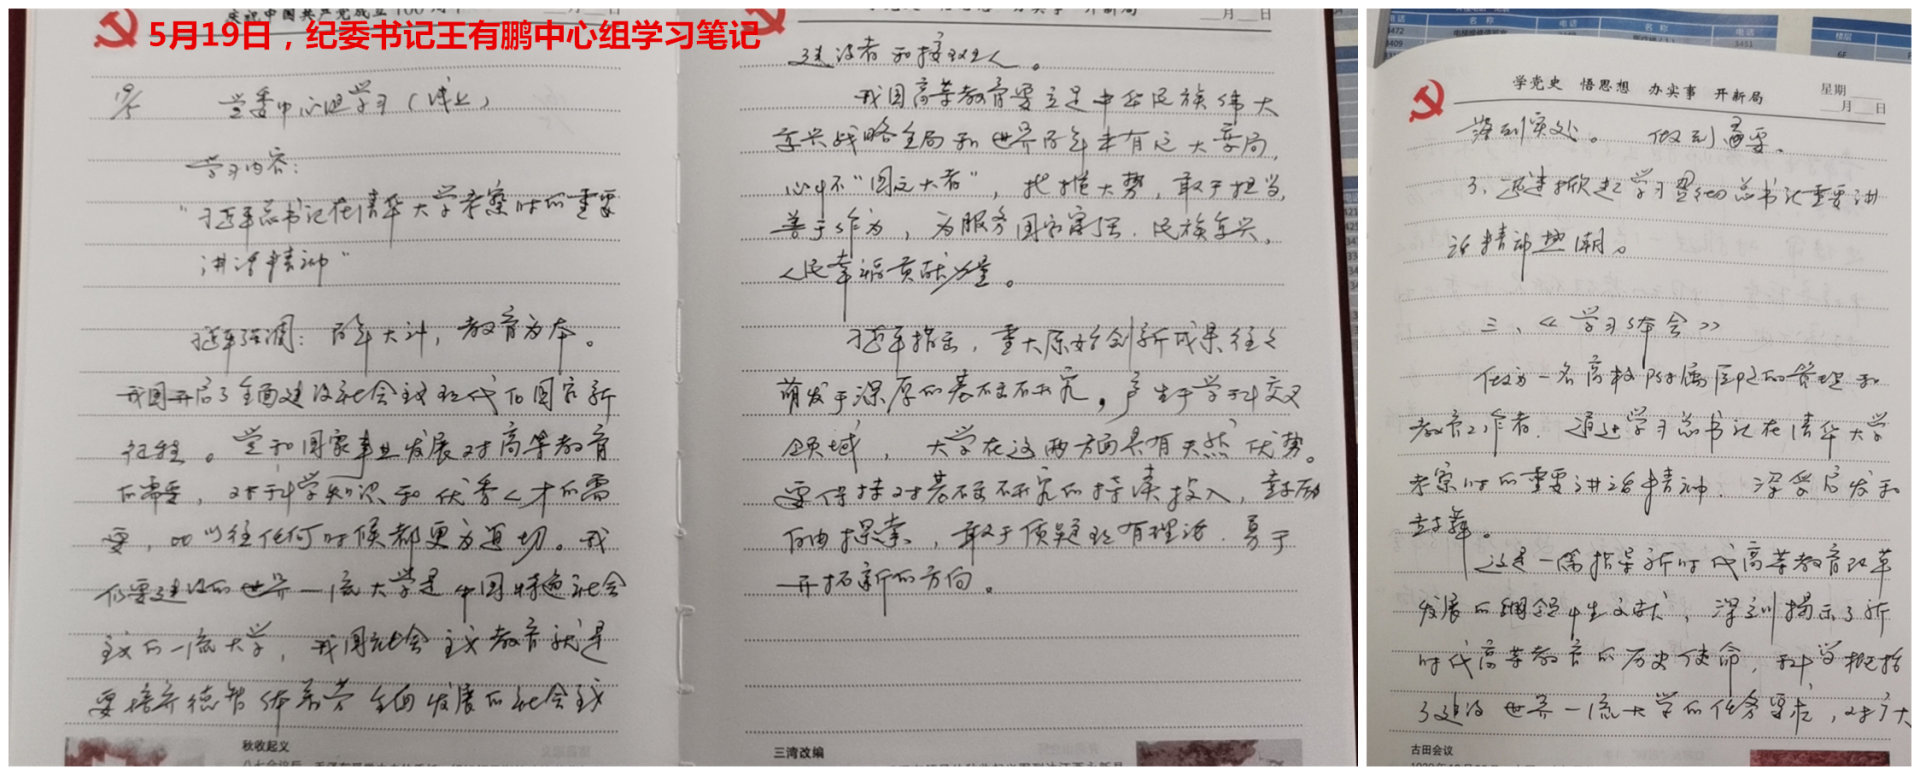 庆祝中国共产党成立100周年
5月19日，纪委书记王有鹏中心组学习笔记
19/5 党委中心组学习（线上）
学习内容：
“习近平总书记在清华大学考察时的重要
讲话精神”
习近平强调：百年大计，教育为本。
我国开启了全面建设社会主义现代化国家新
征程。党和国家事业发展对高等教育
的需要，对于科学知识和优秀人才的需
要，比以往任何时候都更为迫切。我
们要建设的世界一流大学是中国特色社会
主义的一流大学，我国社会主义教育就是
要培养德智体美劳全面发展的社会主义
秋收起义
学党史 悟思想 办实事 开新局
月 日
建设者和接班人。
我国高等教育要立足中华民族伟大
复兴战略全局和世界百年未有之大变局，
心怀“国之大者”，把握大势，敢于担当，
善于作为，为服务国家富强、民族复兴、
人民幸福贡献力量。
习近平指出，重大原始创新成果往往
萌发于深厚的基础研究，产生于学科交叉
领域，大学在这两方面具有天然优势。
要保持对基础研究的持续投入，鼓励
自由探索，敢于质疑现有理论，勇于
开拓新的方向。
三湾改编
电话 名称 电话 名称 电话 楼层
3472
3409 3451 6F
学党史 悟思想 办实事 开新局
星期
月 日
落到实处。 做到
3、迅速掀起学习贯彻总书记重要讲
话精神热潮。
三、《学习体会》
做为一名高校附属医院的管理和
教育工作者，通过学习总书记在清华大学
考察时的重要讲话精神，深受启发和
鼓舞。
这是一篇指导新时代高等教育改革
发展的纲领性文献，深刻揭示了新
时代高等教育的历史使命，科学概括
了建设世界一流大学的任务要求，对扩大
古田会议